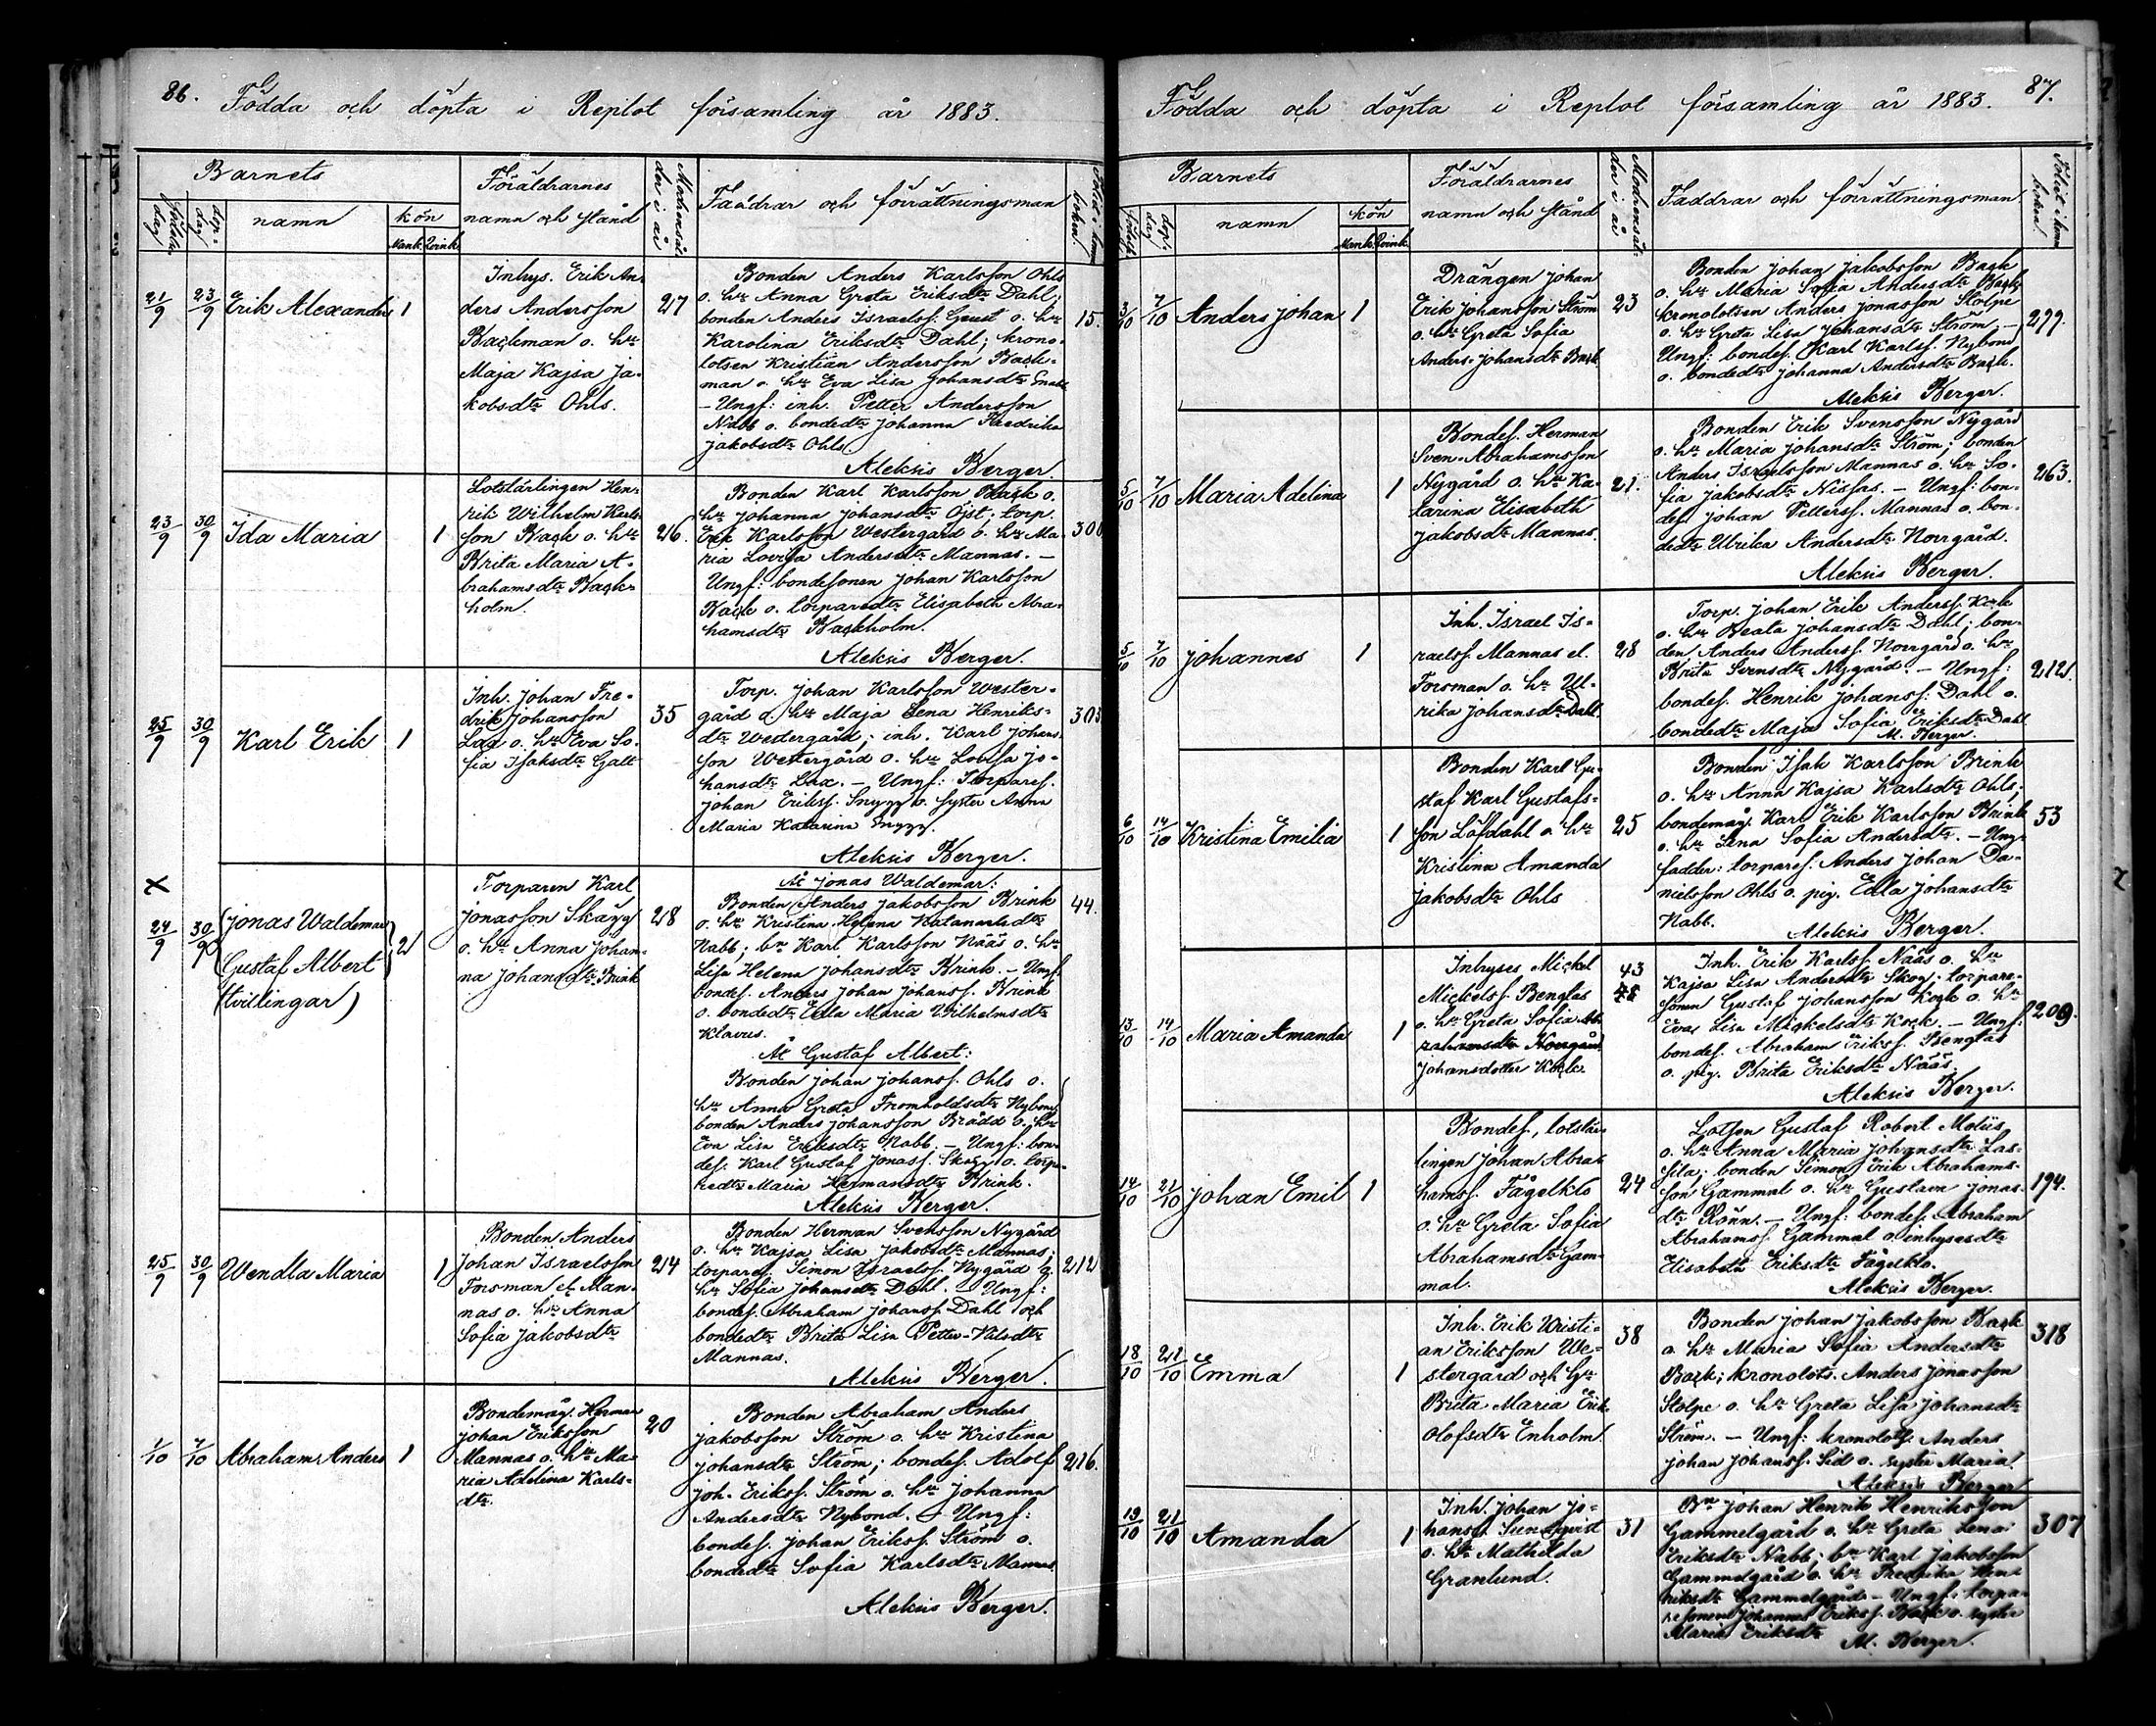 86. Födda och döpta i Replot församling år 1883.
Barnets
namn
kön
Mank. Qvink.
Föräldrarnes
namn och stånd
Faddrar och förrättningsman
21/9 23/9 Erik Alexander 1
Inhys. Erik An-
ders Andersson
Backman o. h. hu
Maja Kajsa Ja-
kobsdtr Ohls.
27
Bonden Anders Karlsson Ohls
o. hu Anna Greta Eriksdtr Dahl;
bonden Anders Israelss. Geust o. hu
Karolina Eriksdtr Dahl; krono-
lotsen Kristian Andersson Back-
man o. hu Eva Lisa Johansdtr
– Ungf: inh. Petter Andersson
Nabb o. bondedtr Johanna Fredrika
Jakobsdtr Ohls.
Aleksis Berger.
15.
23/9 30/9 Ida Maria 1
Lotslärlingen Hen-
rik Wilhelm Karls-
son Back o. hu
Brita Maria A-
brahamsdtr Back-
holm.
26.
Bonden Karl Karlsson Back o.
hu Johanna Johansdtr Öjst; torp.
Erik Karlsson Westergård o. hu Ma-
ria Lovisa Andersdtr Mannas. –
Ungf: bondesonen Johan Karlsson
Back o. torparedtr Elisabeth Abra-
hamsdtr Backholm.
Aleksis Berger.
25/9 30/9 Karl Erik 1
Inh. Johan Fre-
drik Johansson
Lax o. hu Eva So-
fia Isaksdtr Galt
35
Torp. Johan Karlsson Wester-
gård o. hu Maja Lena Henriks-
dtr Westergård; inh. Karl Johans-
son Westergård o. hu Lovisa Jo-
hansdtr Lax. – Ungf: Torpares.
Johan Erikss. Snygg o. syster Anna
Maria Katarina Snygg.
Aleksis Berger.
303
×
24/9 30/9 Jonas Waldemar
Gustaf Albert
(tvillingar)
2
Torparen Karl
Jonasson Skägg
o. hu Anna Johan-
na Johansdtr Brink
28
At Jonas Waldemar:
Bonden Anders Jakobsson Brink
o. hu Kristina Helena Natanaelsdtr
Nabb; bn Karl Karlsson Näås o. hu
Lisa Helena Johansdtr Brink. – Ungf.
bondes. Anders Johan Johanss. Brink
o. bondedtr Edla Maria Wilhelmsdtr
Klavus.
At Gustaf Albert:
Bonden Johan Johanss. Ohls o.
hu Anna Greta Fromholdsdtr Nybond
bonden Anders Johansson Brådd o. hu
Eva Lisa Eriksdtr Nabb. – Ungf: bon-
des. Karl Gustaf Jonass. Skägg o. torpa-
redtr Maria Hermansdtr Brink.
Aleksis Berger.
44.
25/9 30/9 Wendla Maria 1
Bonden Anders
Johan Israelsson
Forsman el. Man-
nas o. hu Anna
Sofia Jakobsdtr
24
Bonden Herman Svensson Nygård
o. hu Kajsa Lisa Jakobsdtr Mannas;
torpares. Simon Israelss. Nygård o.
hu Sofia Johansdtr Dahl. – Ungf:
bondes. Abraham Johanss. Dahl och
bondedtr Brita Lisa Petter-Nilsdtr
Mannas.
Aleksis Berger.
212
1/10 7/10 Abraham Anders 1
Bondemåg. Herman
Johan Eriksson
Mannas o. hu Ma-
ria Adelina Karls-
dtr.
20
Bonden Abraham Anders
Jakobsson Ström o. hu Kristina
Johansdtr Ström; bondes. Adolf
Joh. Erikss. Ström o. hu Johanna
Andersdtr Nybond. – Ungf:
bondes. Johan Erikss. Ström o.
bondedtr Sofia Karlsdtr Mannas.
Aleksis Berger.
216.
Födda och döpta i Replot församling år 1883. 87.
Barnets
namn
kön
Mank. Qvink.
Föräldrarnes
namn och stånd
Faddrar och förrättningsman.
3/10 7/10 Anders Johan 1
Drängen Johan
Erik Johansson Ström
o. hu Greta Sofia
Anders-Johansdtr Back
23
Bonden Johan Jakobsson Back
o. hu Maria Sofia Andersdtr Back;
kronolotsen Anders Jonasson Stolpe
o. hu Greta Lisa Johansdtr Ström; –
Ungf: bondes. Karl Karlss. Nybond
o. bondedtr Johanna Andersdtr Back.
Aleksis Berger.
5/10 7/10 Maria Adelina 1
Bondes. Herman
Sven-Abrahamsson
Nygård o. hu Ka-
tarina Elisabeth
Jakobsdtr Mannas.
21.
Bonden Erik Svensson Nygård
o. hu Maria Johansdtr Ström; bonden
Anders Israelsson Mannas o. hu So-
fia Jakobsdtr Nissas. – Ungf: bon-
des. Johan Petterss. Mannas o. bon-
dedtr Ulrika Andersdtr Norrgård.
Aleksis Berger.
263.
5/10 7/10 Johannes 1
Inh. Israel Is-
raelss. Mannas el.
Forsman o. hu Ul-
rika Johansdtr Dahl.
28
Torp. Johan Erik Anderss. Kock
o. hu Beata Johansdtr Dahl; bon-
den Anders Anderss. Norrgård o. hu
Brita Svensdtr Nygård. – Ungf:
bondes. Henrik Johanss. Dahl o.
bondedtr Maja Sofia Eriksdtr Dahl.
Al. Berger.
212.
6/10 14/10 Kristina Emilia 1
Bonden Karl Gu-
staf Karl Gustafs-
son Löfdahl o. hu
Kristina Amanda
Jakobsdtr Ohls
25
Bonden Isak Karlsson Brink
o. hu Anna Kajsa Karlsdtr Ohls;
bondemåg. Karl Erik Karlsson Brink
o. hu Lena Sofia Andersdtr. – Ung-
fadder: torpares. Anders Johan Da-
nielsson Ohls o. pig. Edla Johansdtr
Nabb.
Aleksis Berger.
53
13/10 14/10 Maria Amanda 1
Inhyses Mickel
Mickelss. Benglas
o. hu Greta Sofia
Johansdotter Kock
43
Inh. Erik Karlss. Näås o. hu
Kajsa Lisa Andersdtr Skog; torpare-
sonen Gustaf Johansson Kock o. hu
Eva Lisa Mickelsdtr Kock. – Ungf:
bondes. Abraham Erikss. Benglas
o. pig. Brita Eriksdtr Näås.
Aleksis Berger.
209.
14/10 21/10 Johan Emil 1
Bondes., lotslär-
lingen Johan Abra-
hamss. Fågelklo
o. hu Greta Sofia
Abrahamsdtr Gam-
mal.
24
Lotsen Gustaf Robert Moliis
o. hu Anna Maria Johansdtr Las-
sila; bonden Simon Erik Abrahams-
son Gammal o. hu Gustava Jonas-
dtr Rönn. – Ungf: bondes. Abraham
Abrahamss. Gammal o. inhysesdtr
Elisabeth Eriksdtr Fågelklo.
Aleksis Berger.
194.
18/10 21/10 Emma 1
Inh. Erik Kristi-
an Eriksson We-
stergård och hu
Brita Maria Erik
Olofsdtr Enholm.
38
Bonden Johan Jakobsson Back
o. hu Maria Sofia Andersdtr
Back; kronolots. Anders Jonasson
Stolpe o. hu Greta Lisa Johansdtr
Ström. – Ungf: kronolots. Anders
Johan Johanss. Sid o. syster Maria.
Aleksis Berger
318
19/10 21/10 Amanda 1
Inh. Johan Jo-
hanss. Sundqvist
o. hu Mathilda
Granlund.
31
Bn Johan Henrik Henriksson
Gammelgård o. hu Greta Lena
Eriksdtr Nabb; bn Karl Jakobsson
Gammelgård o. hu Fredrika Hen-
riksdtr Gammelgård – Ungf: torpa-
resonen Johannes Erikss. Back o. syster
Maria Eriksdtr
Al. Berger.
307